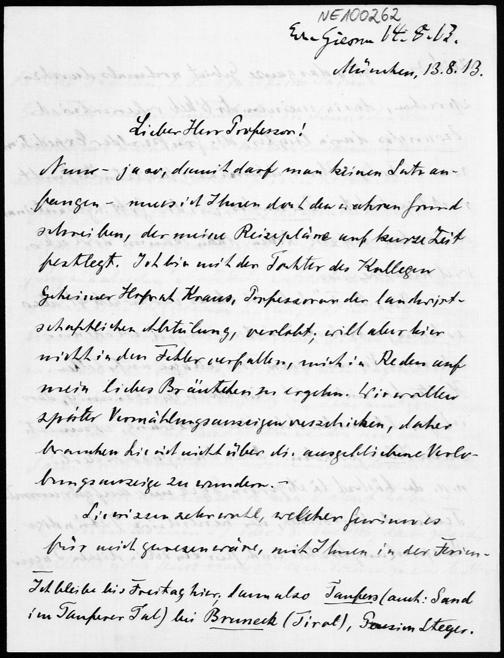 NE100262
14.8.13.
München, 13.8.13.
Lieber Herr Professor!
Nun – ja so, damit darf man keinen Satz an-
fangen – muss ich Ihnen doch den wahren Grund
schreiben, der meine Reisepläne auf kurze Zeit
festlegt. Ich bin mit der Tochter des Kollegen
Geheimer Hofrat Kraus, Professor an der landwirt-
schaftlichen Abteilung, verlobt; will aber hier
nicht in den Fehler verfallen, mich in Reden auf
mein liebes Bräutchen zu ergehn. Wir wollen
später Vermählungsanzeigen verschicken, daher
brauchen Sie sich nicht über die ausgebliebene Verlo-
bungsanzeige zu wundern. –
Sie wissen sehr wohl, welcher Gewinn es
für mich gewesen wäre, mit Ihnen in der Ferien-
Ich bleibe bis Freitag hier, dann also Taufers (auch: Sand
im Tauferer Tal) bei Bruneck (Tirol),